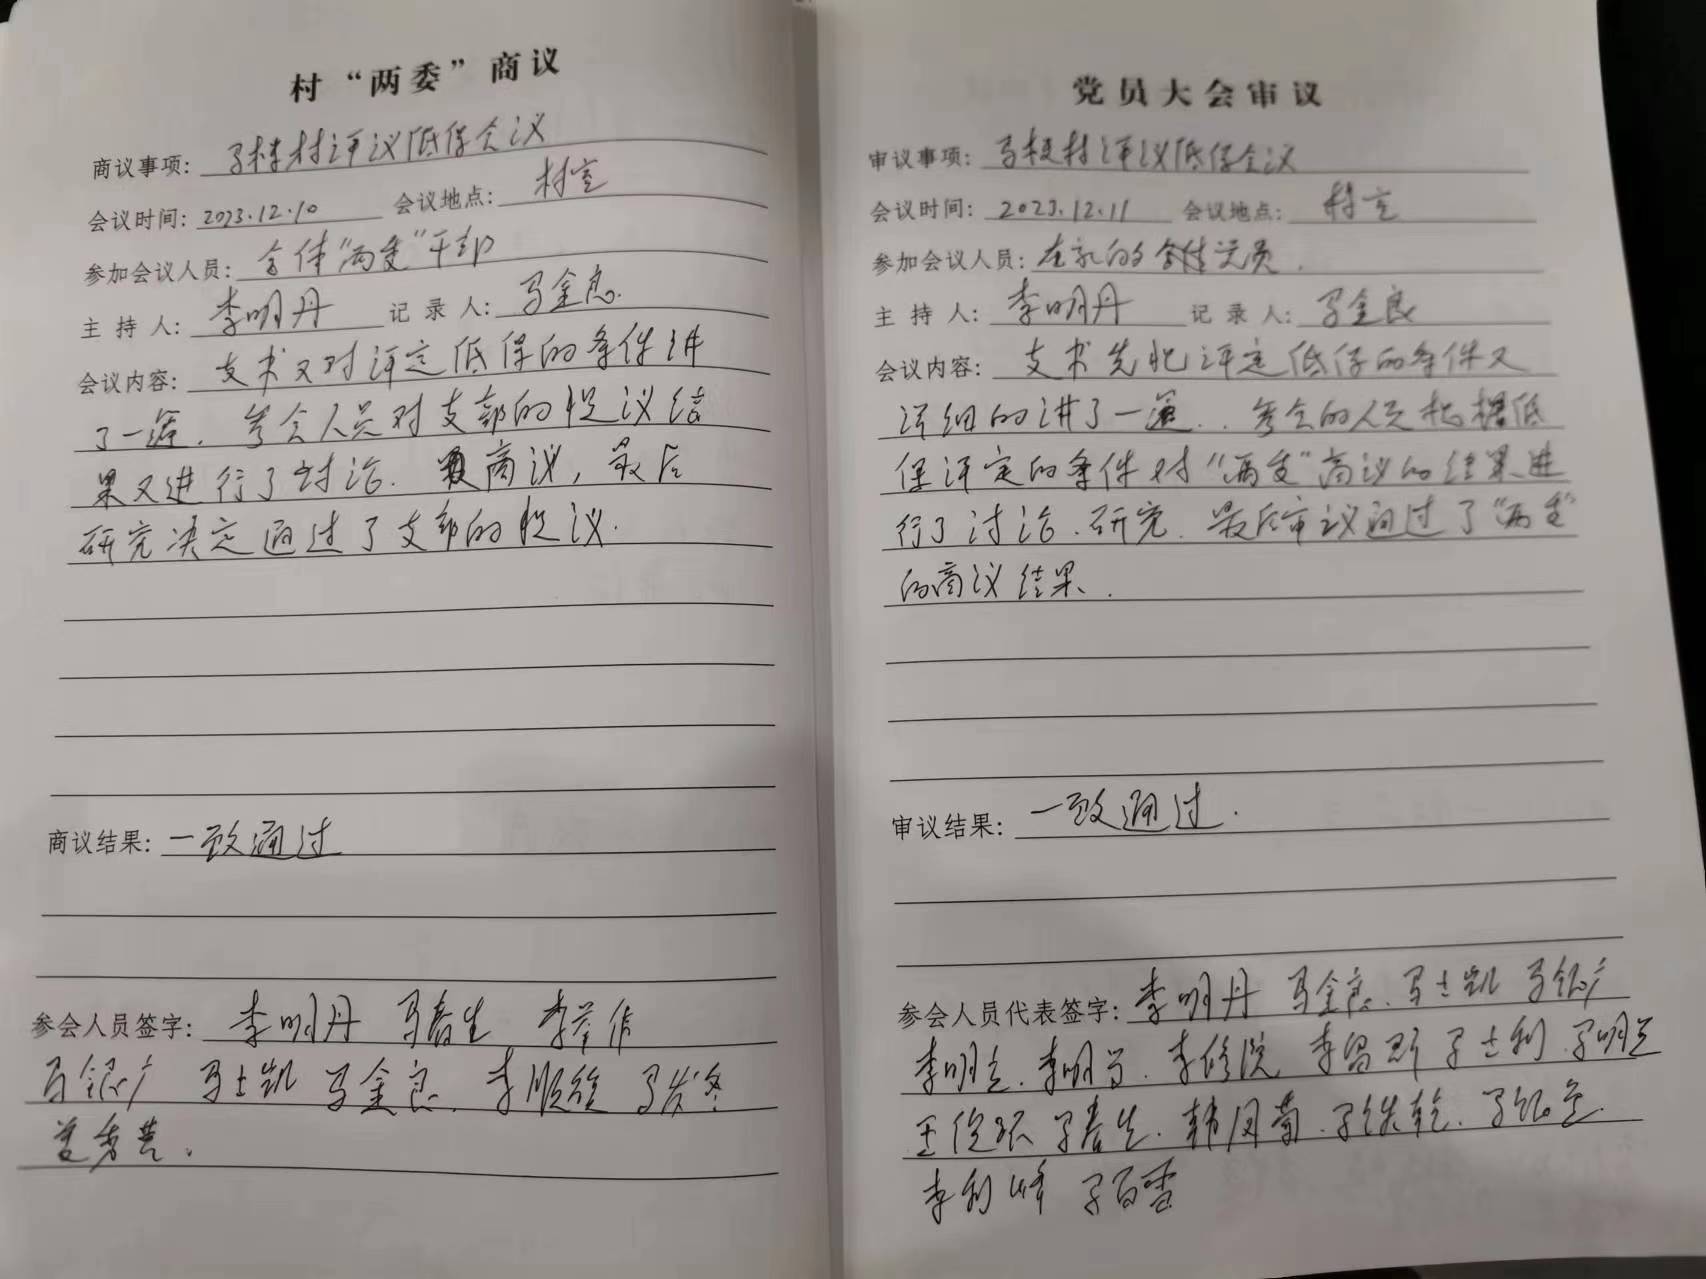 村“两委”商议
商议事项: 马楼村评议低保会议
会议时间: 2023.12.10 会议地点: 村室
参加会议人员: 全体“两委”干部
主持人: 李明丹 记录人: 马金良
会议内容: 支书又对评定低保的条件讲
了一遍. 参会人员对支部的提议结
果又进行了讨论. 商议, 最后
研究决定通过了支部的提议.
商议结果: 一致通过
参会人员签字: 李明丹 马春生
马银广 马士凯 马金良. 李顺
党员大会审议
审议事项: 马楼村评议低保会议
会议时间: 2023.12.11 会议地点: 村室
参加会议人员: 在家的全体党员.
主持人: 李明丹 记录人: 马金良
会议内容: 支书先把评定低保的条件又
详细的讲了一遍. 参会的人员根据低
保评定的条件对“两委”商议的结果进
行了讨论. 研究. 最后审议通过了“两委”
的商议结果.
审议结果: 一致通过.
参会人员代表签字: 李明丹 马金良. 马士凯 马银广
李明 李明 李修 马士利
马春生. 韩凤菊
李利峰 马百雪